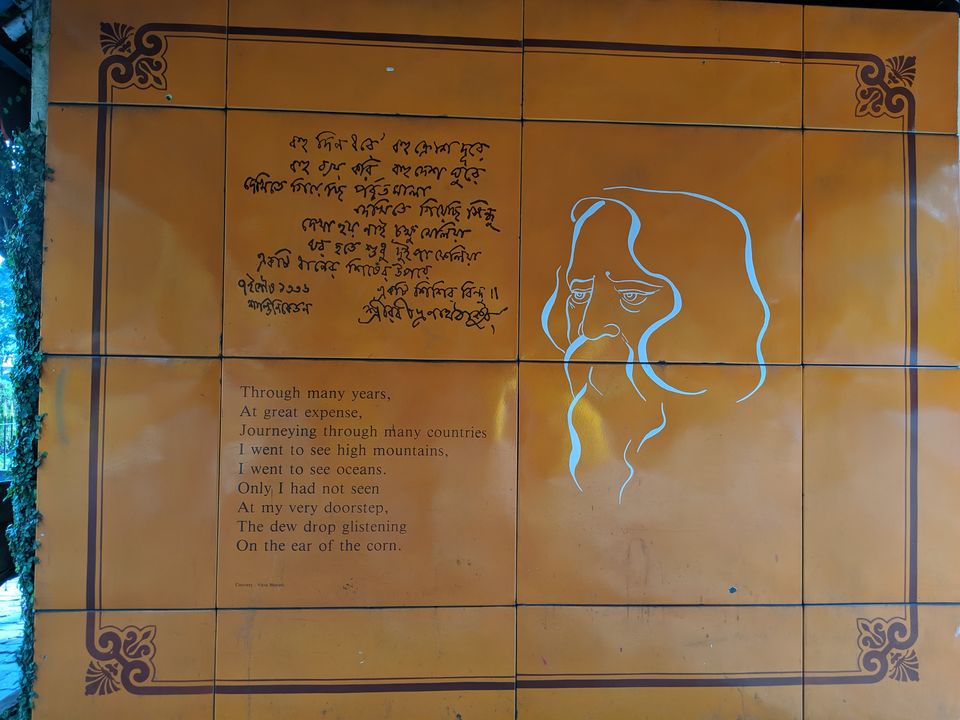 বহু দিন ধরে' বহু ক্রোশ দূরে
বহু ব্যয় করি বহু দেশ ঘুরে
দেখিতে গিয়েছি পর্ব্বতমালা
দেখিতে গিয়েছি সিন্ধু
দেখা হয় নাই চক্ষু মেলিয়া
ঘর হতে শুধু দুই পা ফেলিয়া
একটি ধানের শিষের উপরে
একটি শিশির বিন্দু॥
৭ই পৌষ ১৩৩৬
শান্তিনিকেতন
শ্রীরবীন্দ্রনাথ ঠাকুর
Through many years,
At great expense,
Journeying through many countries
I went to see high mountains,
I went to see oceans.
Only I had not seen
At my very doorstep,
The dew drop glistening
On the ear of the corn.
Courtesy : Visva Bharati.